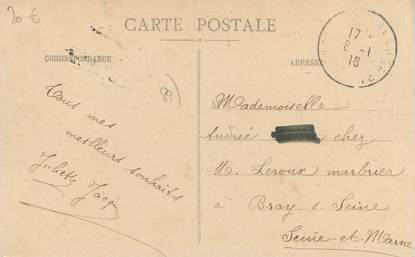 20 €
CARTE POSTALE
CORRESPONDANCE
ADRESSE
17
8 - 1
16
Tous mes
meilleurs souhaits
Juliette Jacq
Mademoiselle
Andrée chez
M. Leroux marbrier
à Bray s Seine
Seine-et-Marne